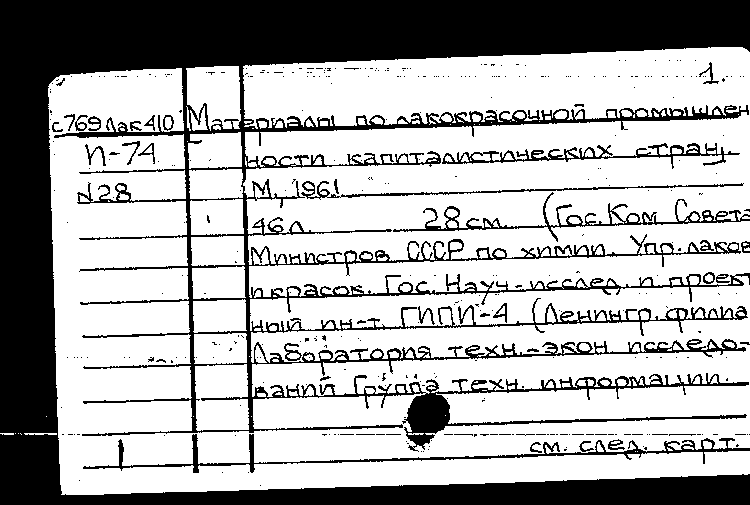 1.
с769лак410 Материалы по лакокрасочной промышлен
П-74 ности капиталистических стран.
№28 М., 1961
46л. 28см. (Гос. Ком Совета
Министров СССР по химии. Упр. лаков
и красок. Гос. Науч-исслед. и проект
ный ин-т. ГИПИ-4. (Ленингр. филиа
Лаборатория техн.-экон исследо-
ваний Группа техн. информации.
см. след. карт.